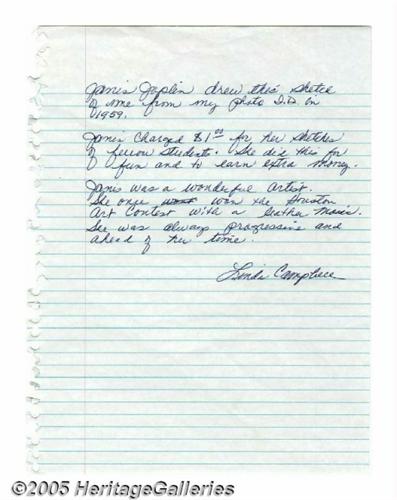 Janis Joplin drew this sketch
of me from my photo I.D. in
1959.
Janis charged $1.00 for her sketches
of fellow students. She did this for
fun and to earn extra money.
Janis was a wonderful artist.
She once won the Houston
Art Contest with a
She was always progressive and
ahead of her time.
Linda Campbell
©2005 HeritageGalleries